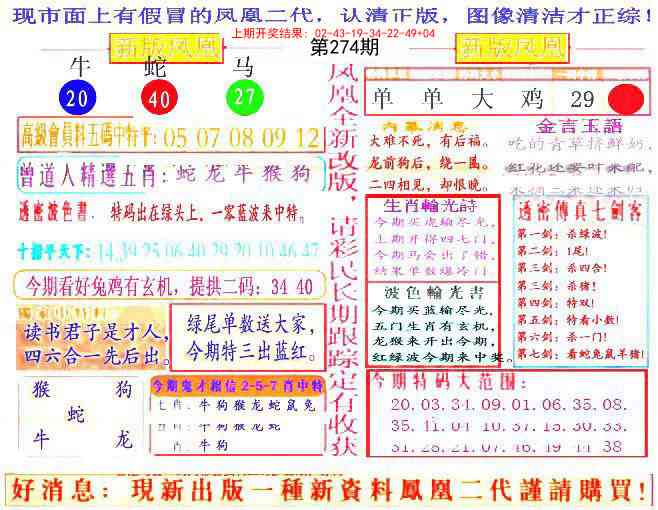 现市面上有假冒的凤凰二代，认清正版，图像清洁才正综！
上期开奖结果：02-43-19-34-22-49+04
新版凤凰
第274期
新版凤凰
牛 蛇 马
20 40 27
高級會員料五碼中特平：05 07 08 09 12
曾道人精選五肖：蛇龙牛猴狗
透密波色書：特码出在绿头上，一零蓝波来中特。
十招平天下：14.39.25.06.40.29.20.10.46.47
今期看好兔鸡有玄机，提拱二码：34 40
读书君子是才人，
四六合一先后出。
绿尾单数送大家，
今期特三出蓝红。
猴 狗
蛇
牛 龙
今期鬼才相信2-5-7肖中特
七肖：牛狗猴龙蛇鼠兔
肖：牛狗猴龙蛇
肖：牛狗
凤凰全新改版，请彩民长期跟踪定有收获
单 单 大 鸡 29
内幕消息
大难不死，有后福。
龙前狗后，绕一圈。
二四相见，却恨晚。
金言玉語
吃的青草挤鲜奶，
红花还要叶来配，
生肖輪光詩
今期买虎输尽光，
上期开得四七门，
今期马会出了错，
结果单数爆冷门
波色輪光書
今期买蓝输尽光，
五门生肖有玄机，
龙猴来开出今期，
红绿波今期来中奖。
透密傳真七劍客
第一剑：杀绿波！
第二剑：1尾！
第三剑：杀四合！
第三剑：杀猪！
第四剑：特双！
第五剑：待看小数！
第六剑：杀一门！
第七剑：看蛇兔鼠羊猪！
今期特码大范围：
20.03.34.09.01.06.35.08.
35.41.04.10.37.13.30.33.
31.28.21.07.46.49.44 38
好消息：現新出版一種新資料鳳凰二代謹請購買！